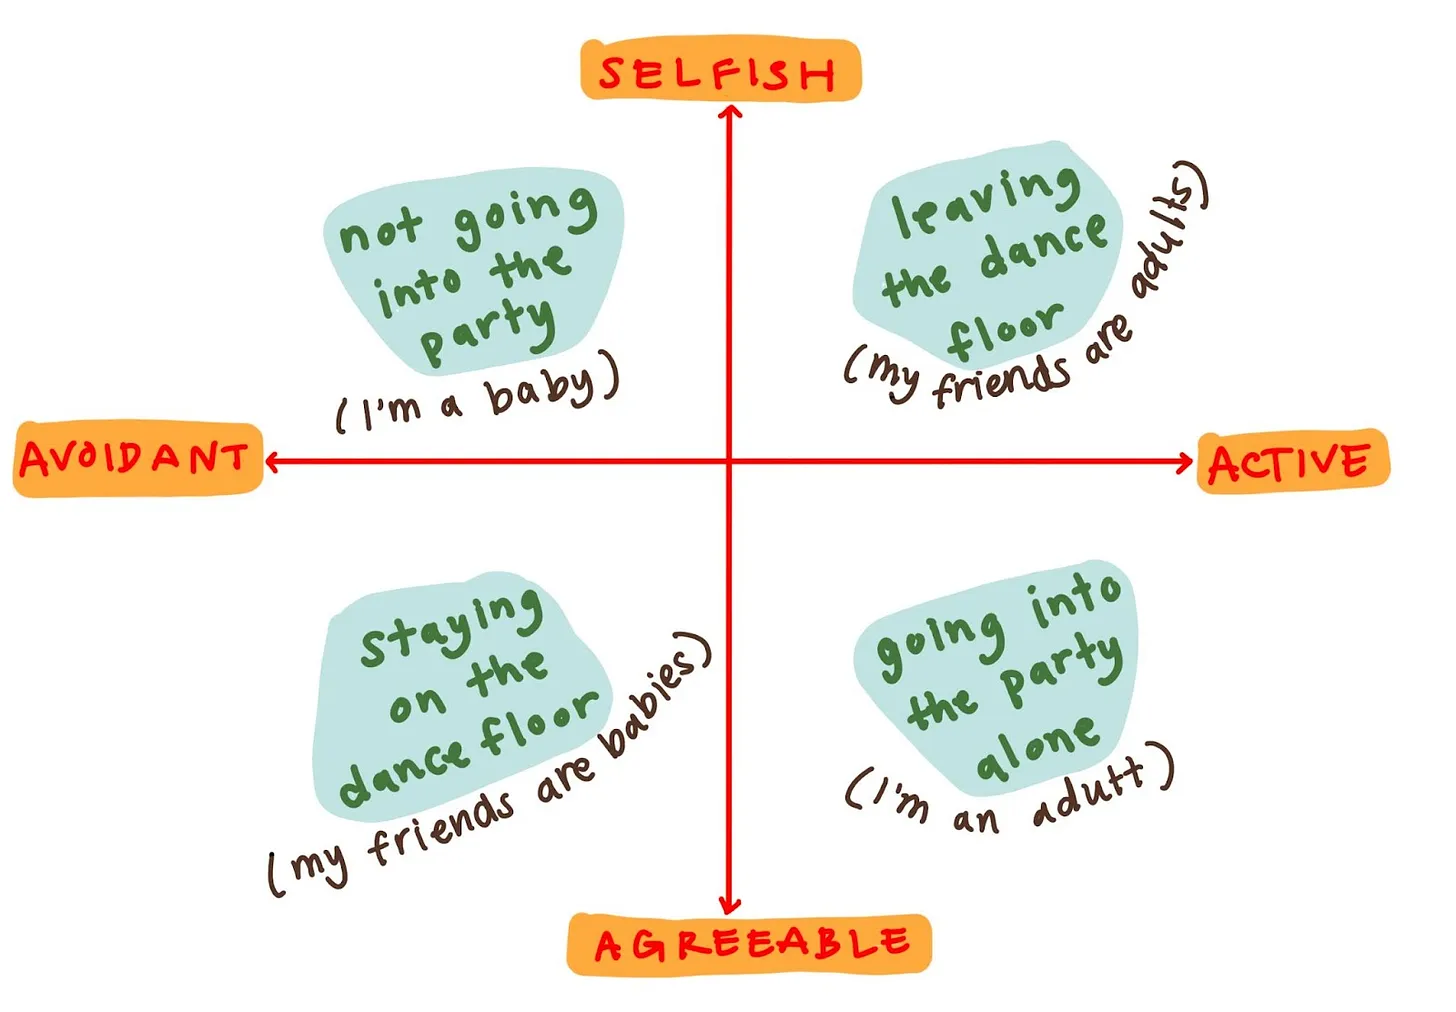 SELFISH
not going
into the
party
(I'm a baby)
leaving
the dance
floor
(my friends are adults)
AVOIDANT
ACTIVE
staying
on the
dance floor
(my friends are babies)
going into
the party
alone
(I'm an adutt)
AGREEABLE